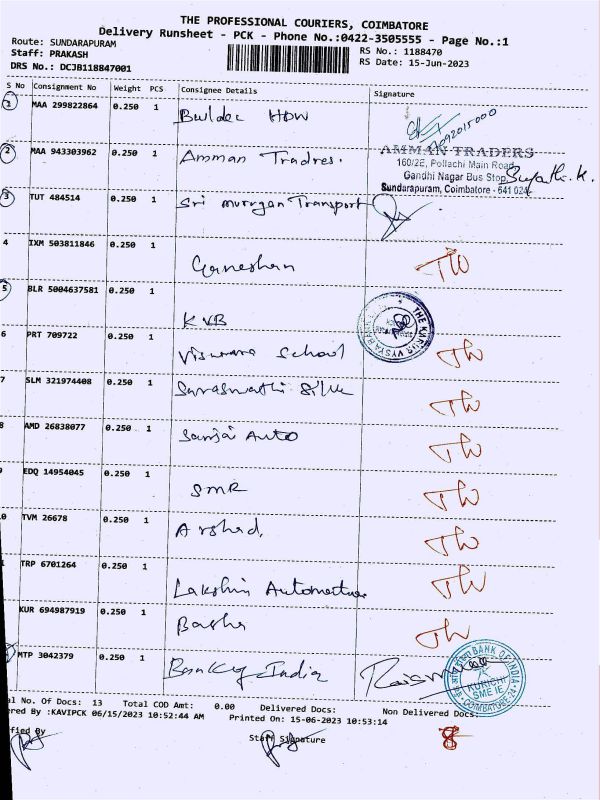 THE PROFESSIONAL COURIERS, COIMBATORE
Delivery Runsheet - PCK - Phone No.:0422-3505555 - Page No.:1
Route: SUNDARAPURAM
Staff: PRAKASH
DRS No.: DCJB118847001
RS No.: 1188470
RS Date: 15-Jun-2023
S No Consignment No Weight PCS Consignee Details Signature
1 MAA 299822864 0.250 1 Builder HDW
2 MAA 943303962 0.250 1 Amman Tradres.
AMMAN TRADERS
160/2E, Pollachi Main Road
Gandhi Nagar Bus Stop
Sundarapuram, Coimbatore - 641 024
3 TUT 484514 0.250 1 Sri murugan Transport
4 IXM 503811846 0.250 1 Ganeshan
5 BLR 5004637581 0.250 1 KVB
THE KARUR VYSYA BANK
6 PRT 709722 0.250 1 School
7 SLM 321974408 0.250 1 Saraswathi Silk
8 AMD 26838077 0.250 1 Sanjai Auto
9 EDQ 14954045 0.250 1 SMR
0 TVM 26678 0.250 1 Arshad.
1 TRP 6701264 0.250 1 Lakshmi
KUR 694987919 0.250 1 Basha
MTP 3042379 0.250 1 Bank of India
BANK OF INDIA
KURICHI
SME IE
COIMBATORE-24
al No. Of Docs: 13 Total COD Amt: 0.00 Delivered Docs: Non Delivered Docs:
ered By :KAVIPCK 06/15/2023 10:52:44 AM Printed On: 15-06-2023 10:53:14
8
ified By Staff Signature